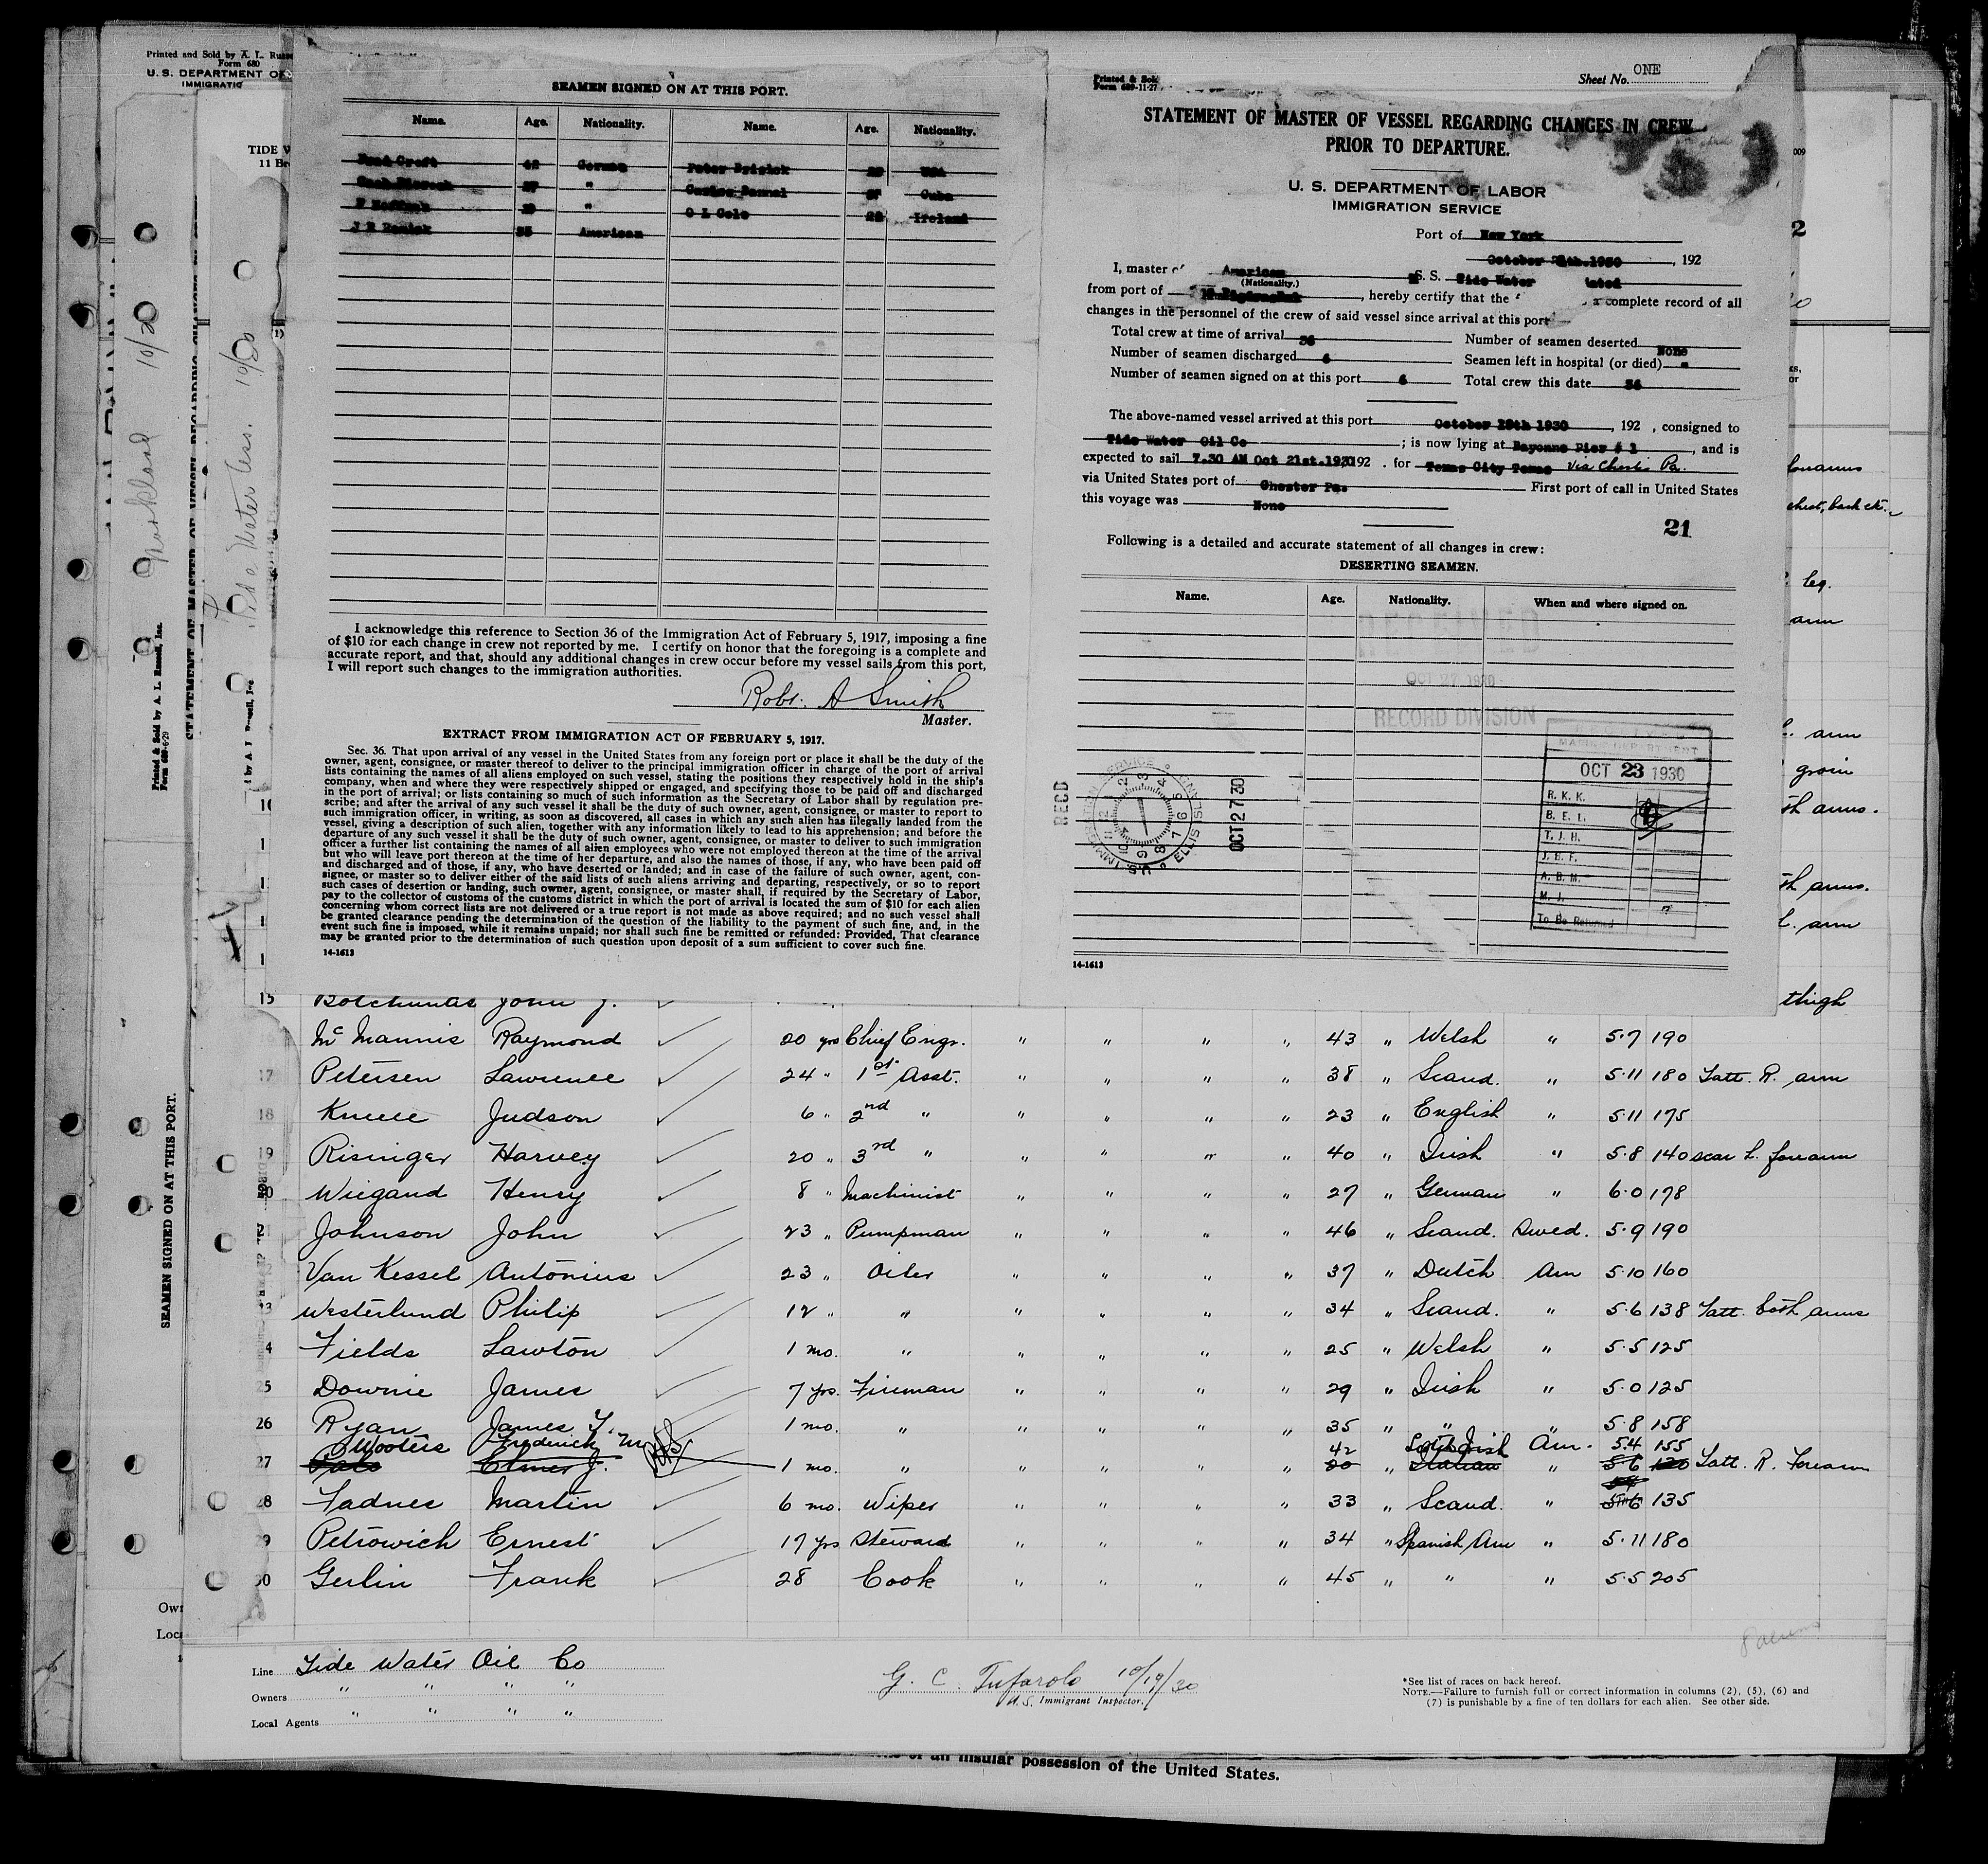 Printed and Sold by A. L.
Form 680
U. S. DEPARTMENT OF
IMMIGRATIO
TIDE W
Parkland 10/2
Tide Water Ass. 10/20
STATEMENT OF MASTER OF VESSEL REGARDING CHANGES IN
Printed & Sold by A. L. Russell, Inc.
SEAMEN SIGNED ON AT THIS PORT.
SEAMEN SIGNED ON AT THIS PORT.
Name. Age. Nationality. Name. Age. Nationality.
German Peter
" Cuba
" O L Cole Ireland
35 American
I acknowledge this reference to Section 36 of the Immigration Act of February 5, 1917, imposing a fine
of $10 for each change in crew not reported by me. I certify on honor that the foregoing is a complete and
accurate report, and that, should any additional changes in crew occur before my vessel sails from this port,
I will report such changes to the immigration authorities.
Robt. A Smith
Master.
EXTRACT FROM IMMIGRATION ACT OF FEBRUARY 5, 1917.
Sec. 36. That upon arrival of any vessel in the United States from any foreign port or place it shall be the duty of the
owner, agent, consignee, or master thereof to deliver to the principal immigration officer in charge of the port of arrival
lists containing the names of all aliens employed on such vessel, stating the positions they respectively hold in the ship's
company, when and where they were respectively shipped or engaged, and specifying those to be paid off and discharged
in the port of arrival; or lists containing so much of such information as the Secretary of Labor shall by regulation pre-
scribe; and after the arrival of any such vessel it shall be the duty of such owner, agent, consignee, or master to report to
such immigration officer, in writing, as soon as discovered, all cases in which any such alien has illegally landed from the
vessel, giving a description of such alien, together with any information likely to lead to his apprehension; and before the
departure of any such vessel it shall be the duty of such owner, agent, consignee, or master to deliver to such immigration
officer a further list containing the names of all alien employees who were not employed thereon at the time of the arrival
but who will leave port thereon at the time of her departure, and also the names of those, if any, who have been paid off
and discharged and of those, if any, who have deserted or landed; and in case of the failure of such owner, agent, con-
signee, or master so to deliver either of the said lists of such aliens arriving and departing, respectively, or so to report
such cases of desertion or landing, such owner, agent, consignee, or master shall, if required by the Secretary of Labor,
pay to the collector of customs of the customs district in which the port of arrival is located the sum of $10 for each alien
concerning whom correct lists are not delivered or a true report is not made as above required; and no such vessel shall
be granted clearance pending the determination of the question of the liability to the payment of such fine, and, in the
event such fine is imposed, while it remains unpaid; nor shall such fine be remitted or refunded: Provided, That clearance
may be granted prior to the determination of such question upon deposit of a sum sufficient to cover such fine.
14-1613
Printed & Sol
Form 689-11-27
Sheet No. ONE
STATEMENT OF MASTER OF VESSEL REGARDING CHANGES IN CREW
PRIOR TO DEPARTURE.
U. S. DEPARTMENT OF LABOR
IMMIGRATION SERVICE
Port of New York
October 1930, 192
I, master of American S. S. Tide Water
(Nationality.)
from port of , hereby certify that the complete record of all
changes in the personnel of the crew of said vessel since arrival at this port
Total crew at time of arrival 36 Number of seamen deserted None
Number of seamen discharged 6 Seamen left in hospital (or died) "
Number of seamen signed on at this port 6 Total crew this date 36
The above-named vessel arrived at this port October 19th 1930, 192 , consigned to
Tide Water Oil Co ; is now lying at Bayonne Pier # 1, and is
expected to sail 7.30 AM Oct 21st.1930 192 . for Texas City Texas via Chester Pa.
via United States port of Chester Pa. First port of call in United States
this voyage was None
21
Following is a detailed and accurate statement of all changes in crew:
DESERTING SEAMEN.
Name. Age. Nationality. When and where signed on.
RECEIVED
OCT 27 1930
RECORD DIVISION
RECD
U.S. IMMIGRATION SERVICE ELLIS ISLAND
OCT 27 30
OCT 23 1930
R. K. K.
B. E. L.
T. J. H.
J. E. F.
A. B. M.
M. J.
To Be Returned
14-1613
2
leg.
arm
arm
groin
th arms.
th arms.
L. arm
15 Botchunas John J. thigh
Mc Mannis Raymond 20 yrs Chief Engr. " " " " 43 " Welsh " 5.7 190
17 Petersen Lawrence 24 " 1st Asst. " " " " 38 " Scand. " 5.11 180 Tatt. R. arm
18 Judson 6 " 2nd " " " " " 23 " English " 5.11 175
19 Risinger Harvey 20 " 3rd " " " " " 40 " Irish " 5.8 140 scar L. forearm
20 Wiegand Henry 8 " Machinist " " " " 27 " German " 6.0 178
Johnson John 23 " Pumpman " " " " 46 " Scand. Swed. 5.9 190
Van Kessel Antonius 23 " Oiler " " " " 37 " Dutch Am 5.10 160
Westerlund Philip 12 " " " " " " 34 " Scand. " 5.6 138 Tatt. both arms
Fields Lawton 1 mo. " " " " " 25 " Welsh " 5.5 125
25 Downie James 7 yrs. Fireman " " " " 29 " Irish " 5.0 125
26 Ryan James T. 1 mo. " " " " " 35 " " " 5.8 158
Wooters Frederick M 42 Irish Am. 5.4 155
27 Elmer J. 1 mo. " " " " " 20 " Italian " 5.6 Tatt. R. Forearm
28 Fadnes Martin 6 mo. Wiper " " " " 33 " Scand. " 135
29 Petrowich Ernest 17 yrs Steward " " " " 34 " Spanish Am " 5.11 180
30 Gerlin Frank 28 Cook " " " " 45 " " " 5.5 205
Line Tide Water Oil Co
Owners " " " "
Local Agents " " " "
G. C. Tufarolo 10/19/30
U.S. Immigrant Inspector.
*See list of races on back hereof.
NOTE.—Failure to furnish full or correct information in columns (2), (5), (6) and
(7) is punishable by a fine of ten dollars for each alien. See other side.
of an insular possession of the United States.